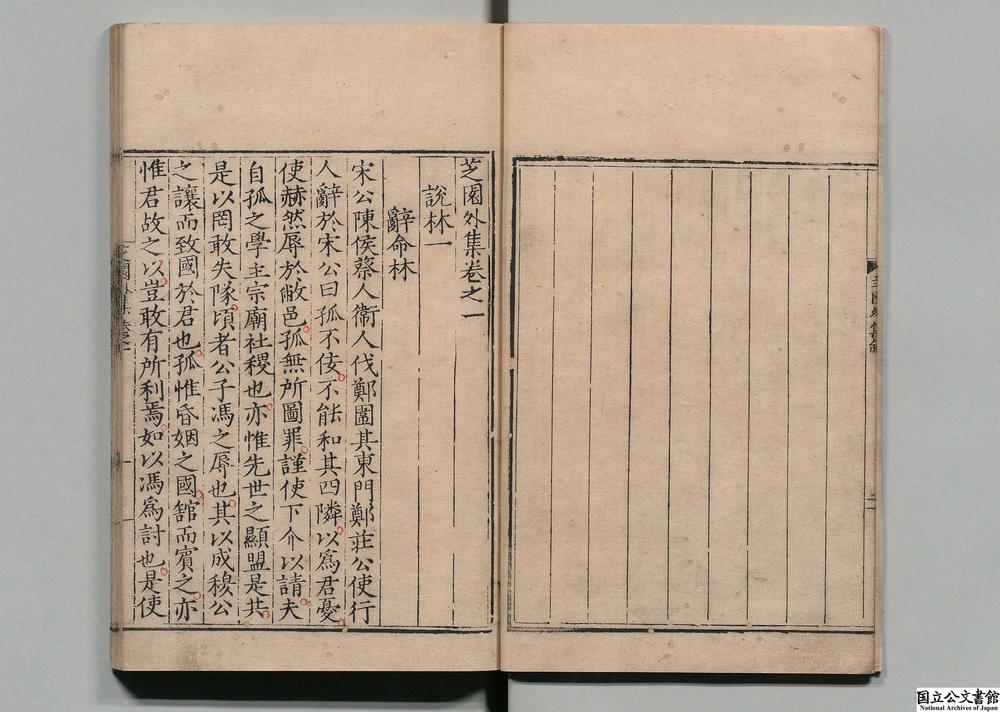 芝園外集卷之一
說林一
辭命林
宋公陳侯蔡人衞人伐鄭圍其東門鄭莊公使行
人辭於宋公曰孤不佞不能和其四隣以爲君憂
使赫然辱於敝邑孤無所圖罪謹使下介以請夫
自孤之學主宗廟社稷也亦惟先世之顯盟是共
是以罔敢失隊頃者公子馮之辱也其以成穆公
之讓而致國於君也孤惟昏姻之國舘而賓之亦
惟君故之以豈敢有所利焉如以馮爲討也是使
国立公文書館
National Archives of Japan